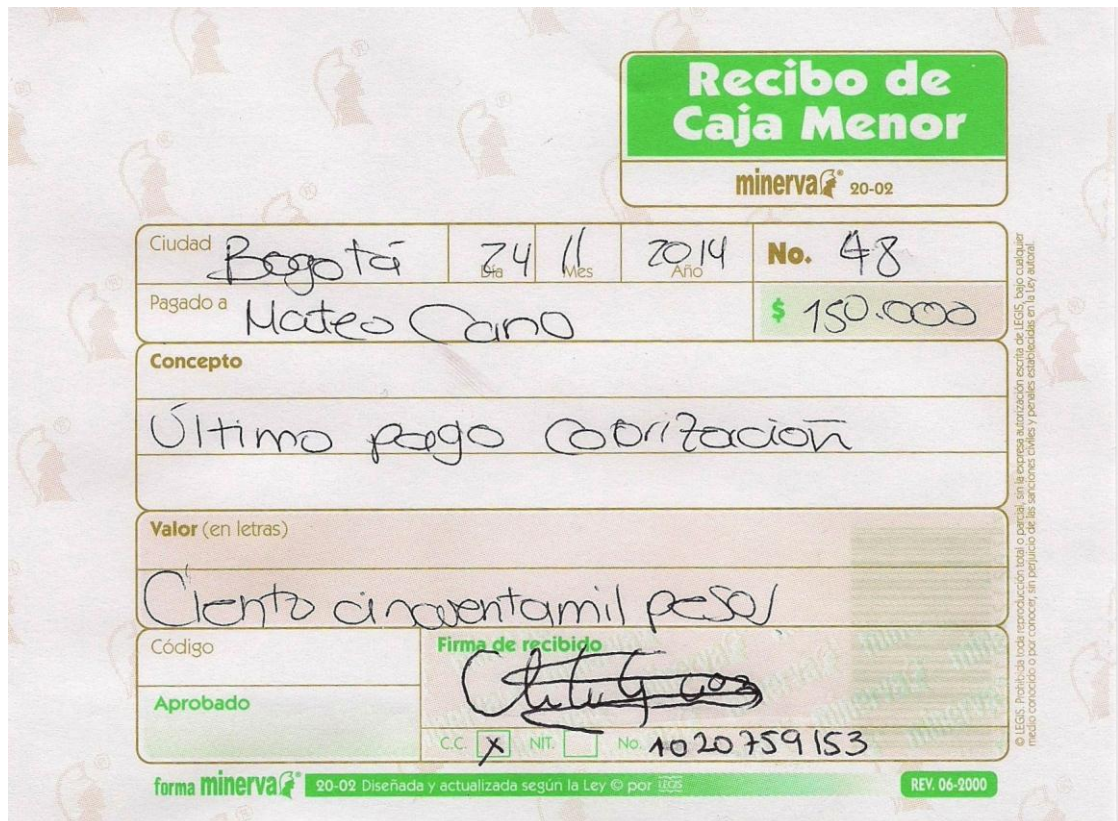 Recibo de
Caja Menor
minerva 20-02
Ciudad Bogotá 24 Día 11 Mes 2014 Año No. 48
Pagado a Mateo Cano $ 150.000
Concepto
Último pago colorización
Valor (en letras)
Ciento cincuentamil pesos
Código
Firma de recibido
Aprobado
C.C. X NIT. No. 1020759153
forma minerva 20-02 Diseñada y actualizada según la Ley © por LEGIS REV. 06-2000
© LEGIS. Prohibida toda reproducción total o parcial, sin la expresa autorización escrita de LEGIS, bajo cualquier
medio conocido o por conocer, sin perjuicio de las sanciones civiles y penales establecidas en la Ley autoral.